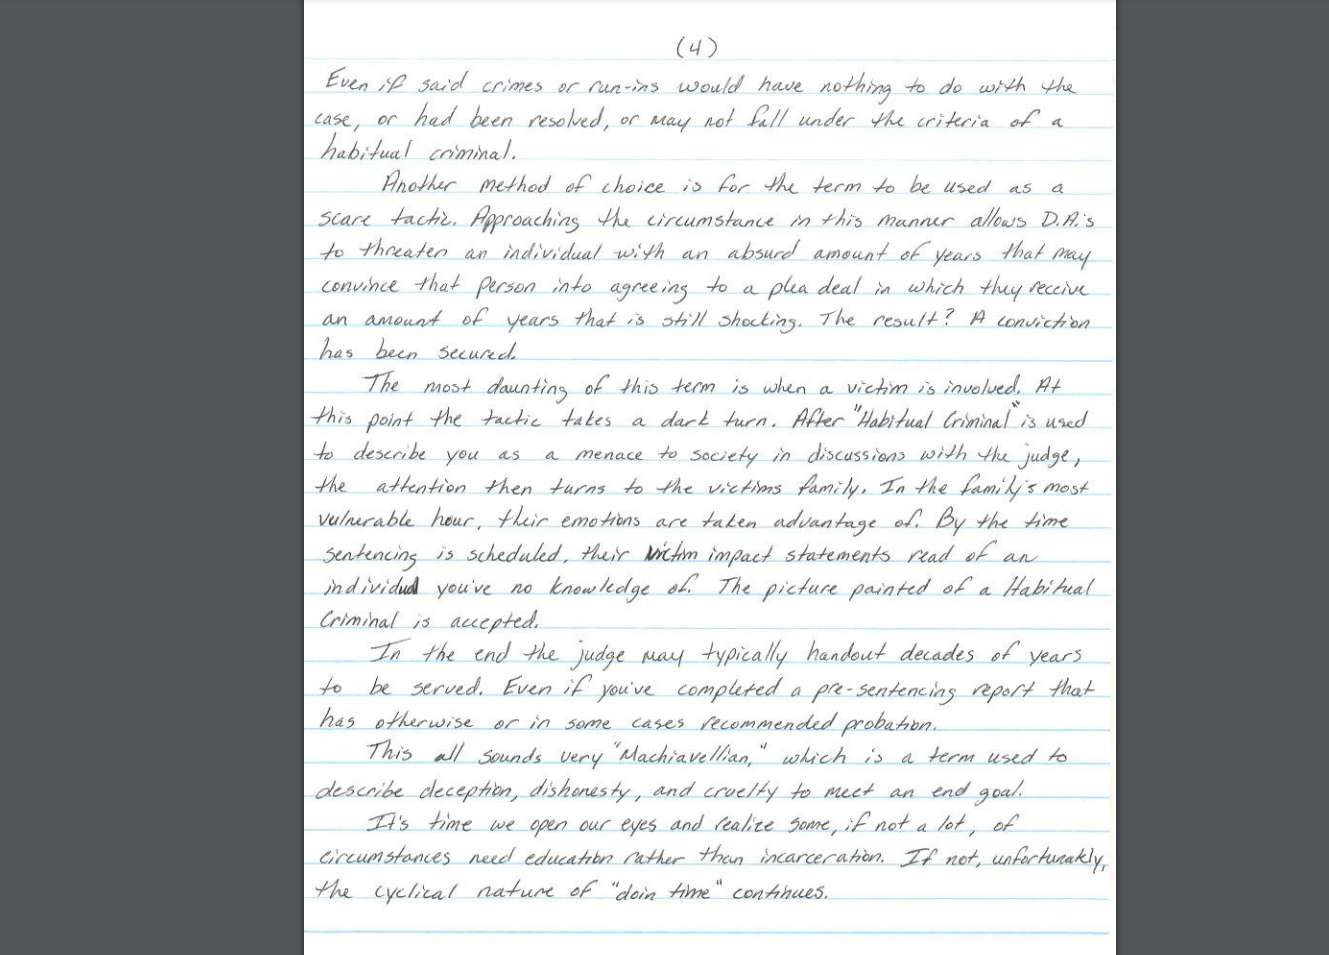 (4)
Even if said crimes or run-ins would have nothing to do with the
case, or had been resolved, or may not fall under the criteria of a
habitual criminal.
Another method of choice is for the term to be used as a
scare tactic. Approaching the circumstance in this manner allows D.A.'s
to threaten an individual with an absurd amount of years that may
convince that person into agreeing to a plea deal in which they receive
an amount of years that is still shocking. The result? A conviction
has been secured.
The most daunting of this term is when a victim is involved. At
this point the tactic takes a dark turn. After "Habitual Criminal" is used
to describe you as a menace to society in discussions with the judge,
the attention then turns to the victims family. In the family's most
vulnerable hour, their emotions are taken advantage of. By the time
sentencing is scheduled, their victim impact statements read of an
individual you've no knowledge of. The picture painted of a Habitual
Criminal is accepted.
In the end the judge may typically handout decades of years
to be served. Even if you've completed a pre-sentencing report that
has otherwise or in some cases recommended probation.
This all sounds very "Machiavellian," which is a term used to
describe deception, dishonesty, and cruelty to meet an end goal.
It's time we open our eyes and realize some, if not a lot, of
circumstances need education rather than incarceration. If not, unfortunately,
the cyclical nature of "doin time" continues.